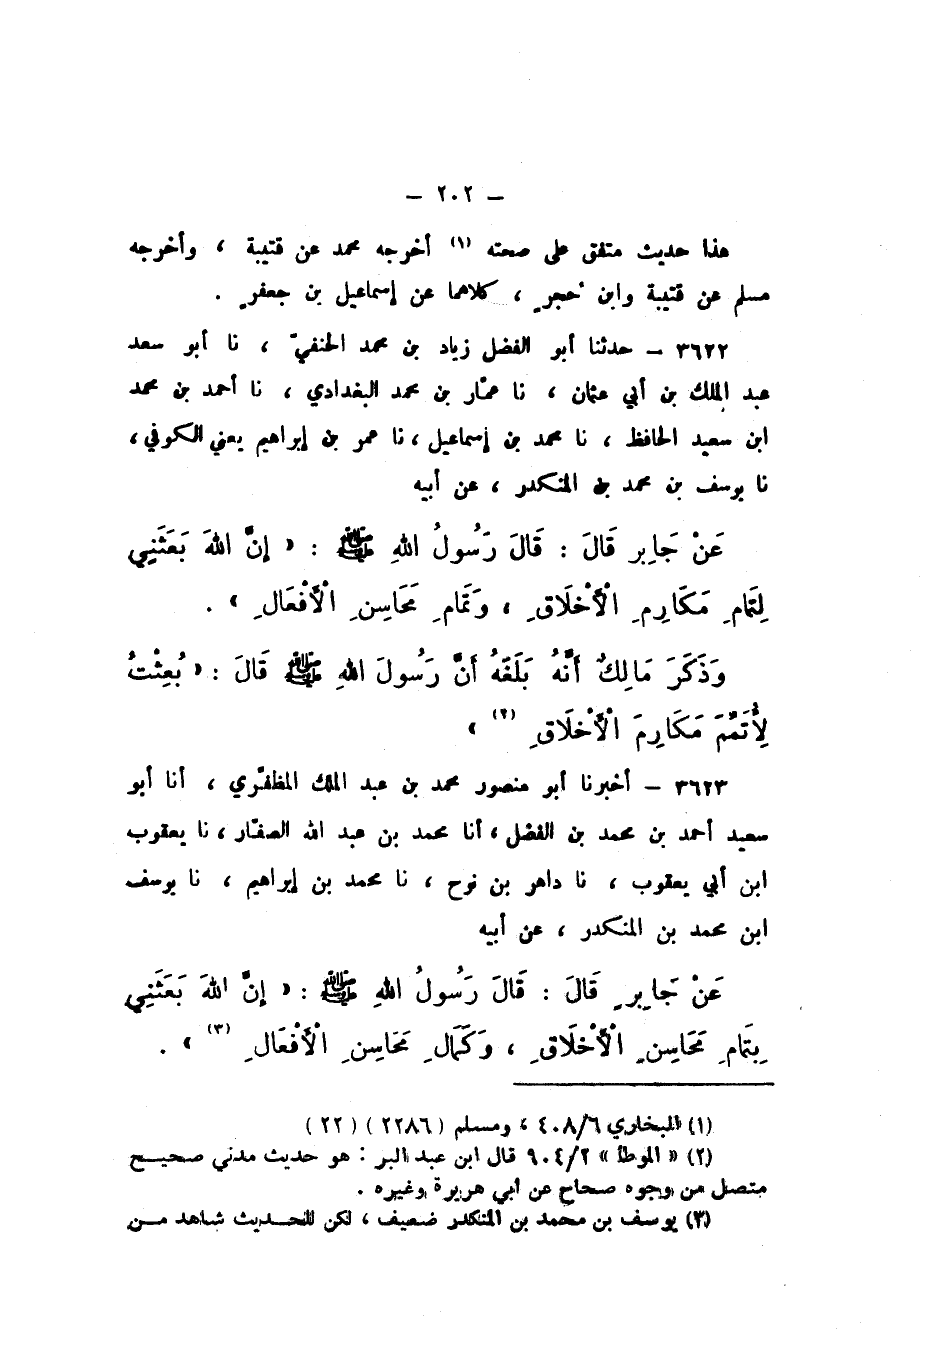 – ٢٠٢ –
هذا حديث متفق على صحته (١) أخرجه محمد عن قتيبة ، وأخرجه
مسلم عن قتيبة وابن حُجرٍ ، كلاهما عن إسماعيل بن جعفرٍ .
٣٦٢٢ – حدثنا أبو الفضل زياد بن محمد الحنفيّ ، نا أبو سعد
عبد الملك بن أبي عثمان ، نا عمّار بن محمد البغدادي ، نا أحمد بن محمد
ابن سعيد الحافظ ، نا محمد بن إسماعيل ، نا عمر بن إبراهيم يعني الكوفي ،
نا يوسف بن محمد بن المنكدر ، عن أبيه
عَنْ جَابِرٍ قَالَ : قَالَ رَسُولُ اللهِ ﷺ : « إِنَّ اللهَ بَعَثَنِي
لِتَمَامِ مَكَارِمِ الْأَخْلَاقِ ، وَتَمَامِ مَحَاسِنِ الْأَفْعَالِ » .
وَذَكَرَ مَالِكٌ أَنَّهُ بَلَغَهُ أَنَّ رَسُولَ اللهِ ﷺ قَالَ : « بُعِثْتُ
لِأُتَمِّمَ مَكَارِمَ الْأَخْلَاقِ (٢) »
٣٦٢٣ – أخبرنا أبو منصور محمد بن عبد الملك المظفّري ، أنا أبو
سعيد أحمد بن محمد بن الفضل ، أنا محمد بن عبد الله الصفّار ، نا يعقوب
ابن أبي يعقوب ، نا داهر بن نوح ، نا محمد بن إبراهيم ، نا يوسف
ابن محمد بن المنكدر ، عن أبيه
عَنْ جَابِرٍ قَالَ : قَالَ رَسُولُ اللهِ ﷺ : « إِنَّ اللهَ بَعَثَنِي
بِتَمَامِ مَحَاسِنِ الْأَخْلَاقِ ، وَكَمَالِ مَحَاسِنِ الْأَفْعَالِ (٣) » .
(١) البخاري ٤٠٨/٦ ، ومسلم ( ٢٢٨٦ ) ( ٢٢ )
(٢) « الموطأ » ٩٠٤/٢ قال ابن عبد البر : هو حديث مدني صحيح
متصل من وجوه صحاح عن أبي هريرة وغيره .
(٣) يوسف بن محمد بن المنكدر ضعيف ، لكن للحديث شاهد من